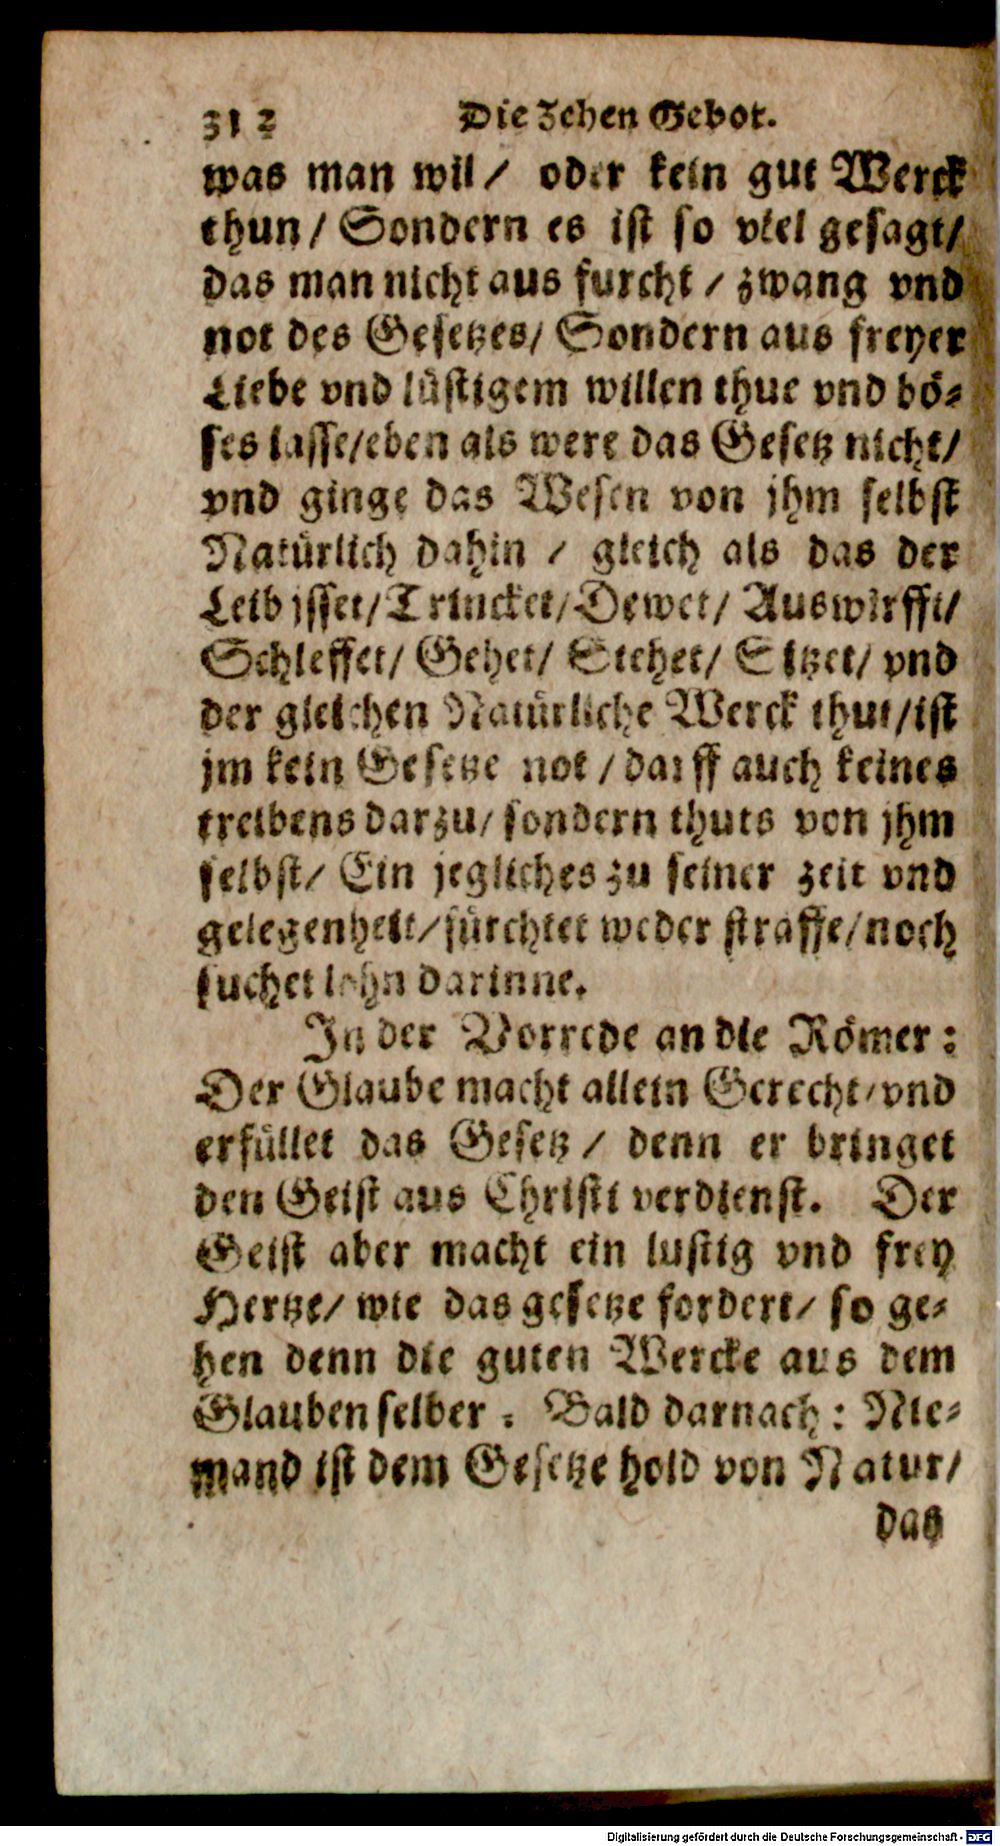 312 Die Zehen Gebot.
was man wil/ oder kein gut Werck
thun/ Sondern es ist so viel gesagt/
das man nicht aus furcht / zwang vnd
not des Gesetzes/ Sondern aus freyer
Liebe vnd lüstigem willen thue vnd bö-
ses lasse/eben als were das Gesetz nicht/
vnd ginge das Wesen von jhm selbst
Natürlich dahin / gleich als das der
Leib jsset/Trincket/Dewet/ Auswirfft/
Schleffet/ Gehet/ Stehet/ Sitzet/ vnd
der gleichen Natürliche Werck thut/ist
jm kein Gesetze not / darff auch keines
treibens darzu/ sondern thuts von jhm
selbst/ Ein jegliches zu seiner zeit vnd
gelegenheit/fürchtet weder straffe/noch
suchet lohn darinne.
In der Vorrede an die Römer:
Der Glaube macht allein Gerecht/vnd
erfüllet das Gesetz / denn er bringet
den Geist aus Christi verdienst. Der
Geist aber macht ein lustig vnd frey
Hertze/ wie das gesetze fordert/ so ge-
hen denn die guten Wercke aus dem
Glauben selber. Bald darnach: Nie-
mand ist dem Gesetze hold von Natur/
das
Digitalisierung gefördert durch die Deutsche Forschungsgemeinschaft - DFG